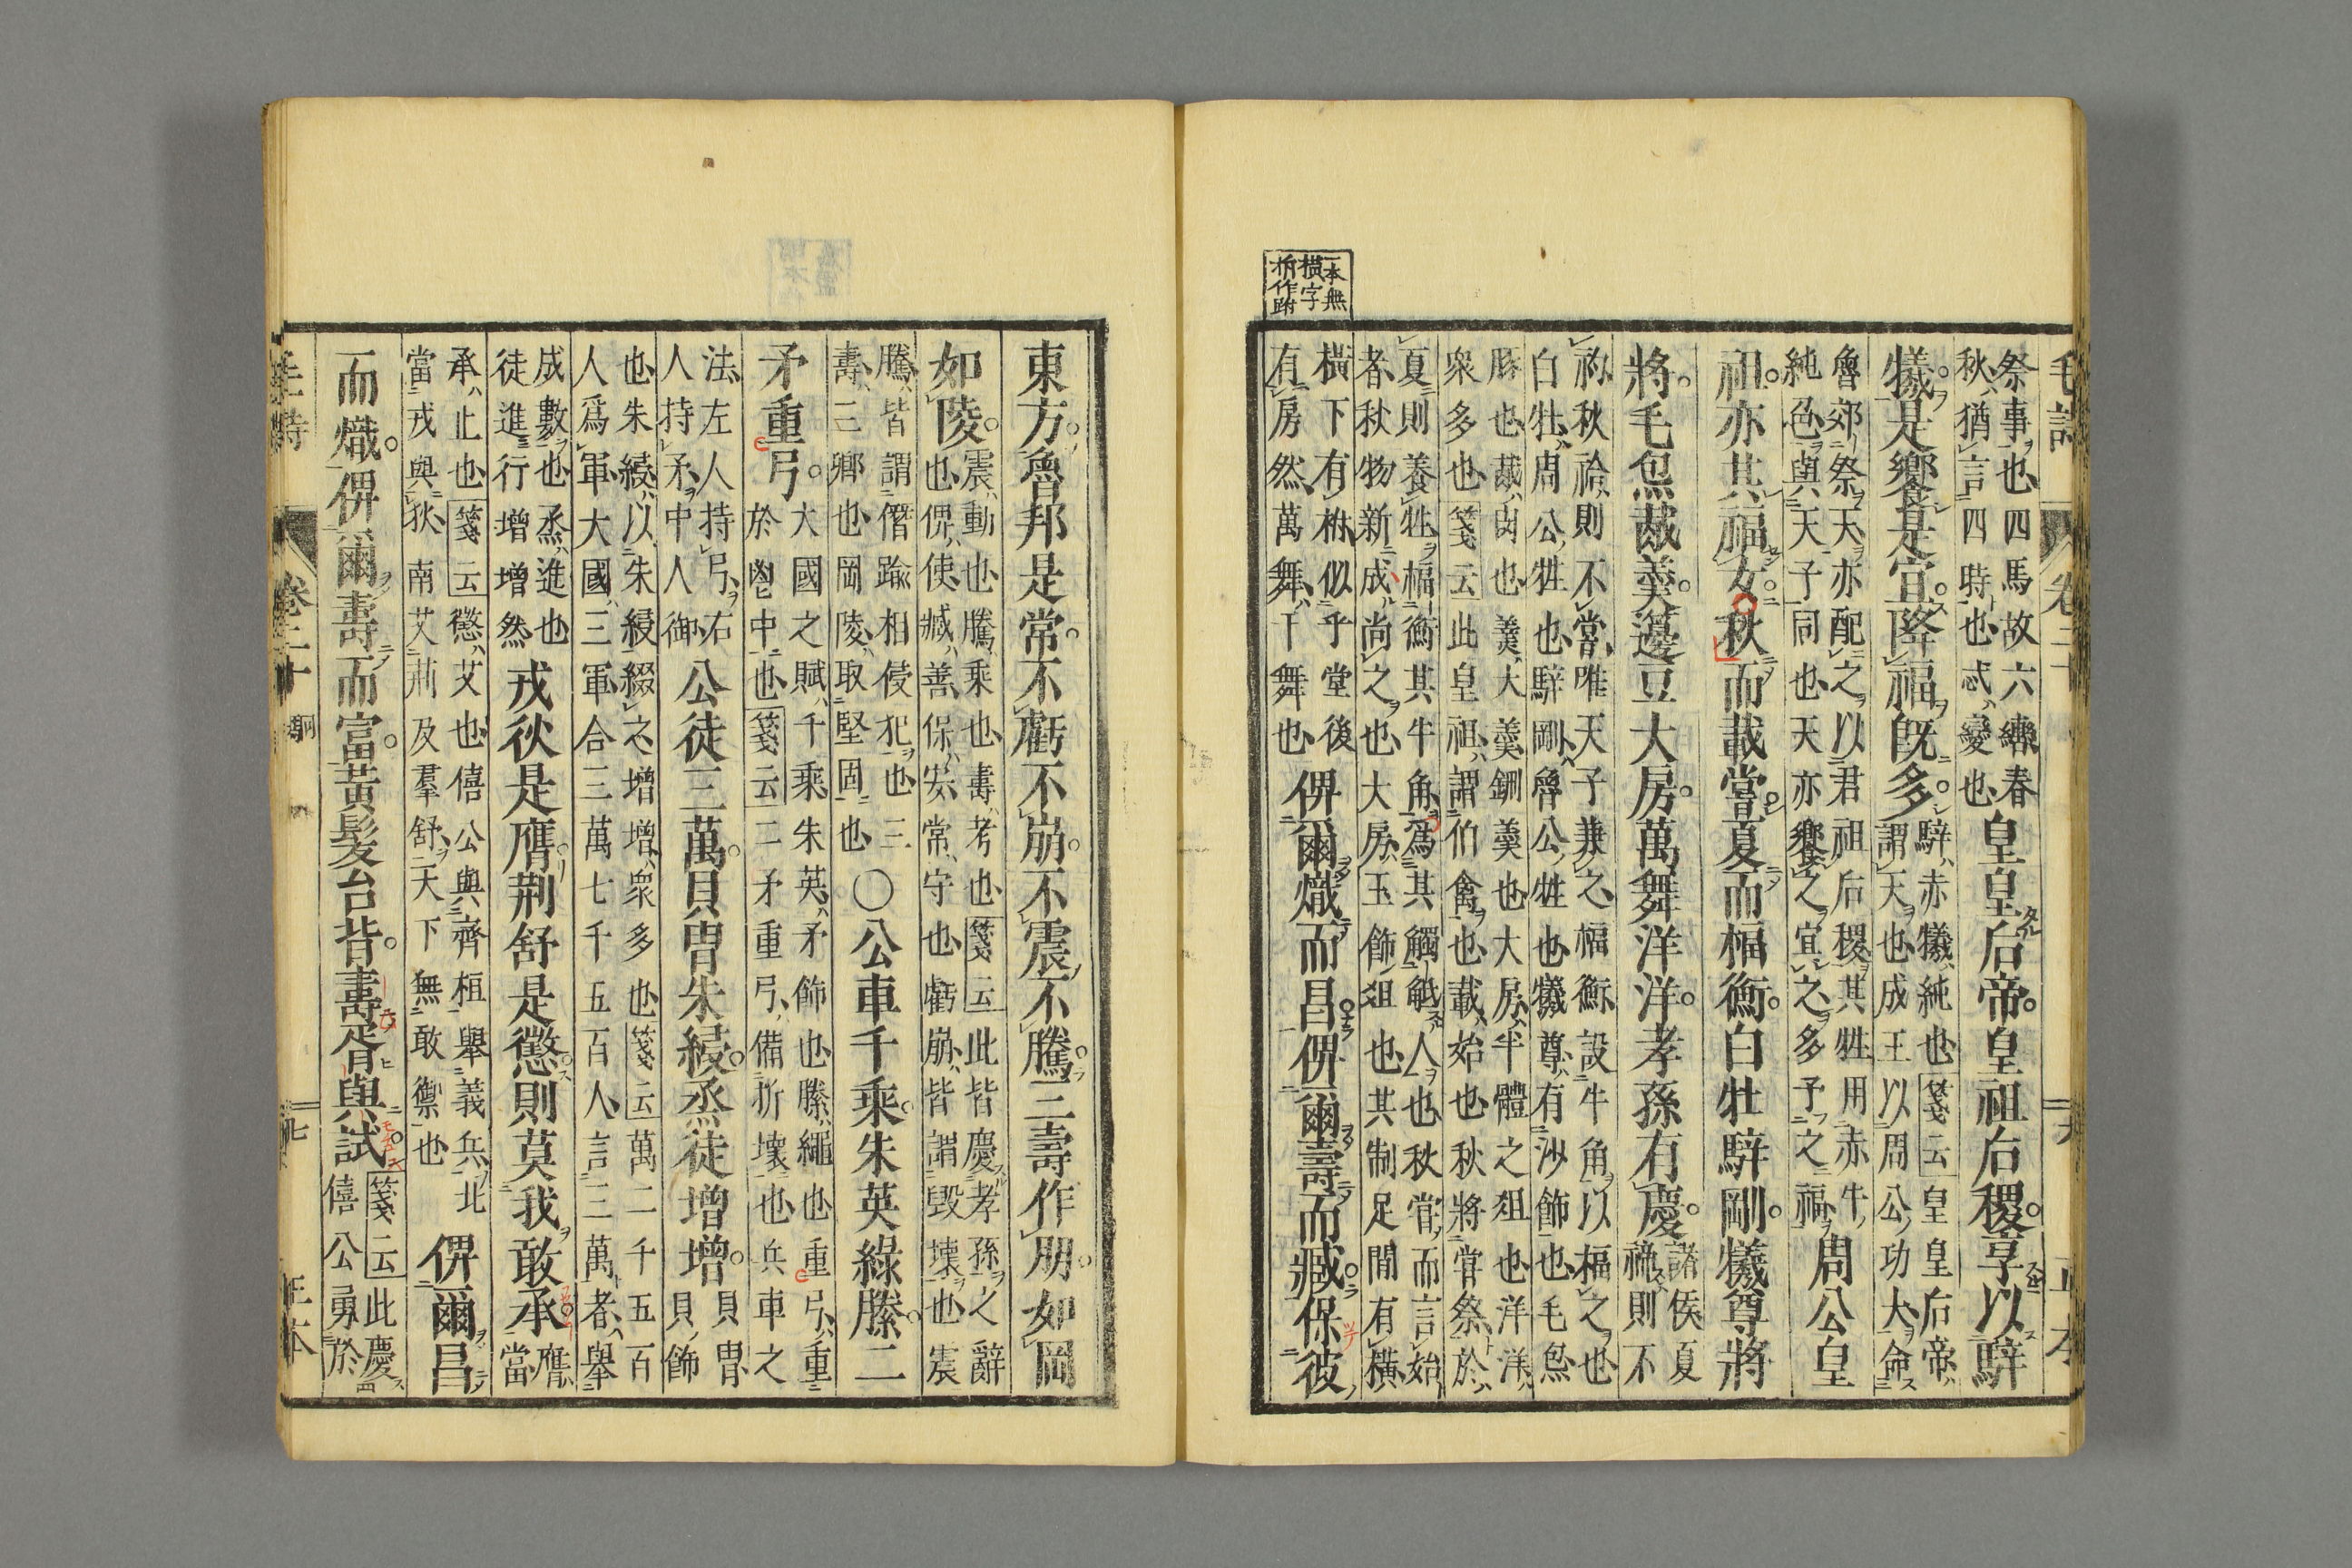 一本無
橫字
柎作跗
毛詩 卷二十
祭事也四馬故六轡春
秋猶言四時也忒變也
皇皇后帝皇祖后稷享以騂
犧是饗是宜降福旣多
騂赤犧純也箋云皇皇后帝
謂天也成王以周公功大命
魯郊祭天亦配之以君祖后稷其牲用赤牛
純色與天子同也天亦饗之宜之多予之福
周公皇
祖亦其福女秋而載嘗夏而楅衡白牡騂剛犧尊將
將毛炰胾羹籩豆大房萬舞洋洋孝孫有慶
諸侯夏
禘則不
礿秋祫則不嘗唯天子兼之楅衡設牛角以楅之也
白牡周公牲也騂剛魯公牲也犧尊有沙飾也毛炰
豚也胾肉也羹大羹鉶羹也大房半體之俎也洋洋
衆多也箋云此皇祖謂伯禽也載始也秋將嘗祭於
夏則養牲楅衡其牛角爲其觸觝人也秋嘗而言始
者秋物新成尚之也大房玉飾俎也其制足間有橫
橫下有柎似乎堂後
有房然萬舞干舞也
俾爾熾而昌俾爾壽而臧保彼
東方魯邦是常不虧不崩不震不騰三壽作朋如岡
如陵
震動也騰乘也壽考也箋云此皆慶孝孫之辭
也俾使臧善保安常守也虧崩皆謂毀壞也震
騰皆謂僭踰相侵犯也三
壽三卿也岡陵取堅固也
○公車千乘朱英綠縢二
矛重弓
大國之賦千乘朱英矛飾也縢繩也重弓重
於鬯中也箋云二矛重弓備折壞也兵車之
法左人持弓右
人持矛中人御
公徒三萬貝冑朱綅烝徒增增
貝冑
貝飾
也朱綅以朱綅綴之增增衆多也箋云萬二千五百
人爲軍大國三軍合三萬七千五百人言三萬者舉
成數也烝進也
徒進行增增然
戎狄是膺荊舒是懲則莫我敢承
膺
當
承止也箋云懲艾也僖公與齊桓舉義兵北
當戎與狄南艾荊及羣舒天下無敢禦也
俾爾昌
而熾俾爾壽而富黃髮台背壽胥與試
箋云此慶
僖公勇於
毛詩 卷二十 駉 七 正本